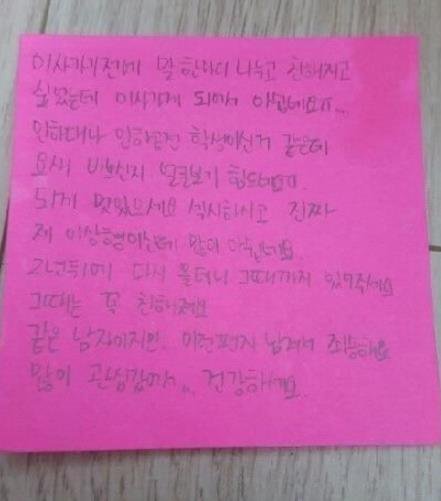 이사가기 전에 말 한마디 나누고 친해지고
싶었는데 이사가게 되어서 아쉽네요...
인하대나 인하공전 학생이신거 같은데
요새 바쁘신지 얼굴보기 힘드네요.
되게 멋있으세요 섹시하시고 진짜
제 이상형이신데 많이 아쉽네요.
2년뒤에 다시 올테니 그때까지 있어주세요
그때는 꼭 친해져요
같은 남자이지만. 이런편지 남겨서 죄송해요
많이 관심갔어서.. 건강하세요.